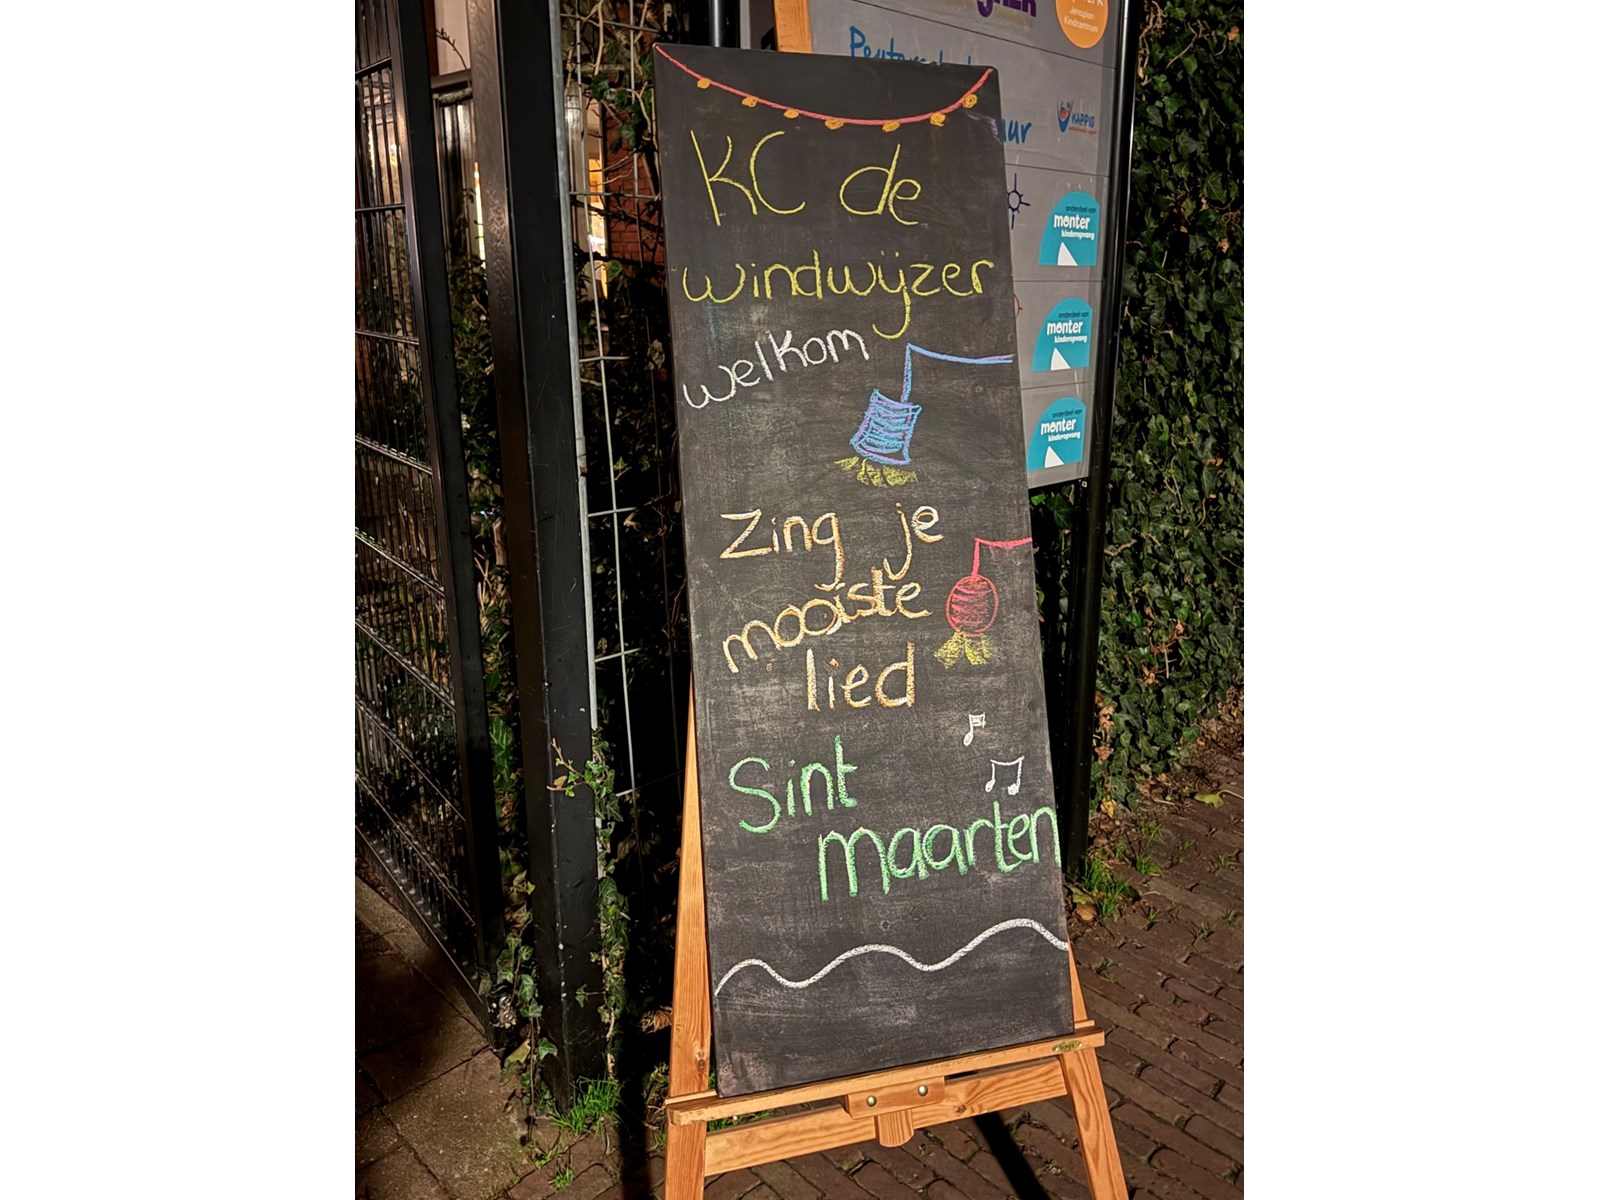 KC de
windwijzer
welkom
Zing je
mooiste
lied
Sint
maarten
Jenaplan
Kindcentrum
KAPPIO
onderdeel van
monter
kinderopvang
onderdeel van
monter
kinderopvang
onderdeel van
monter
kinderopvang